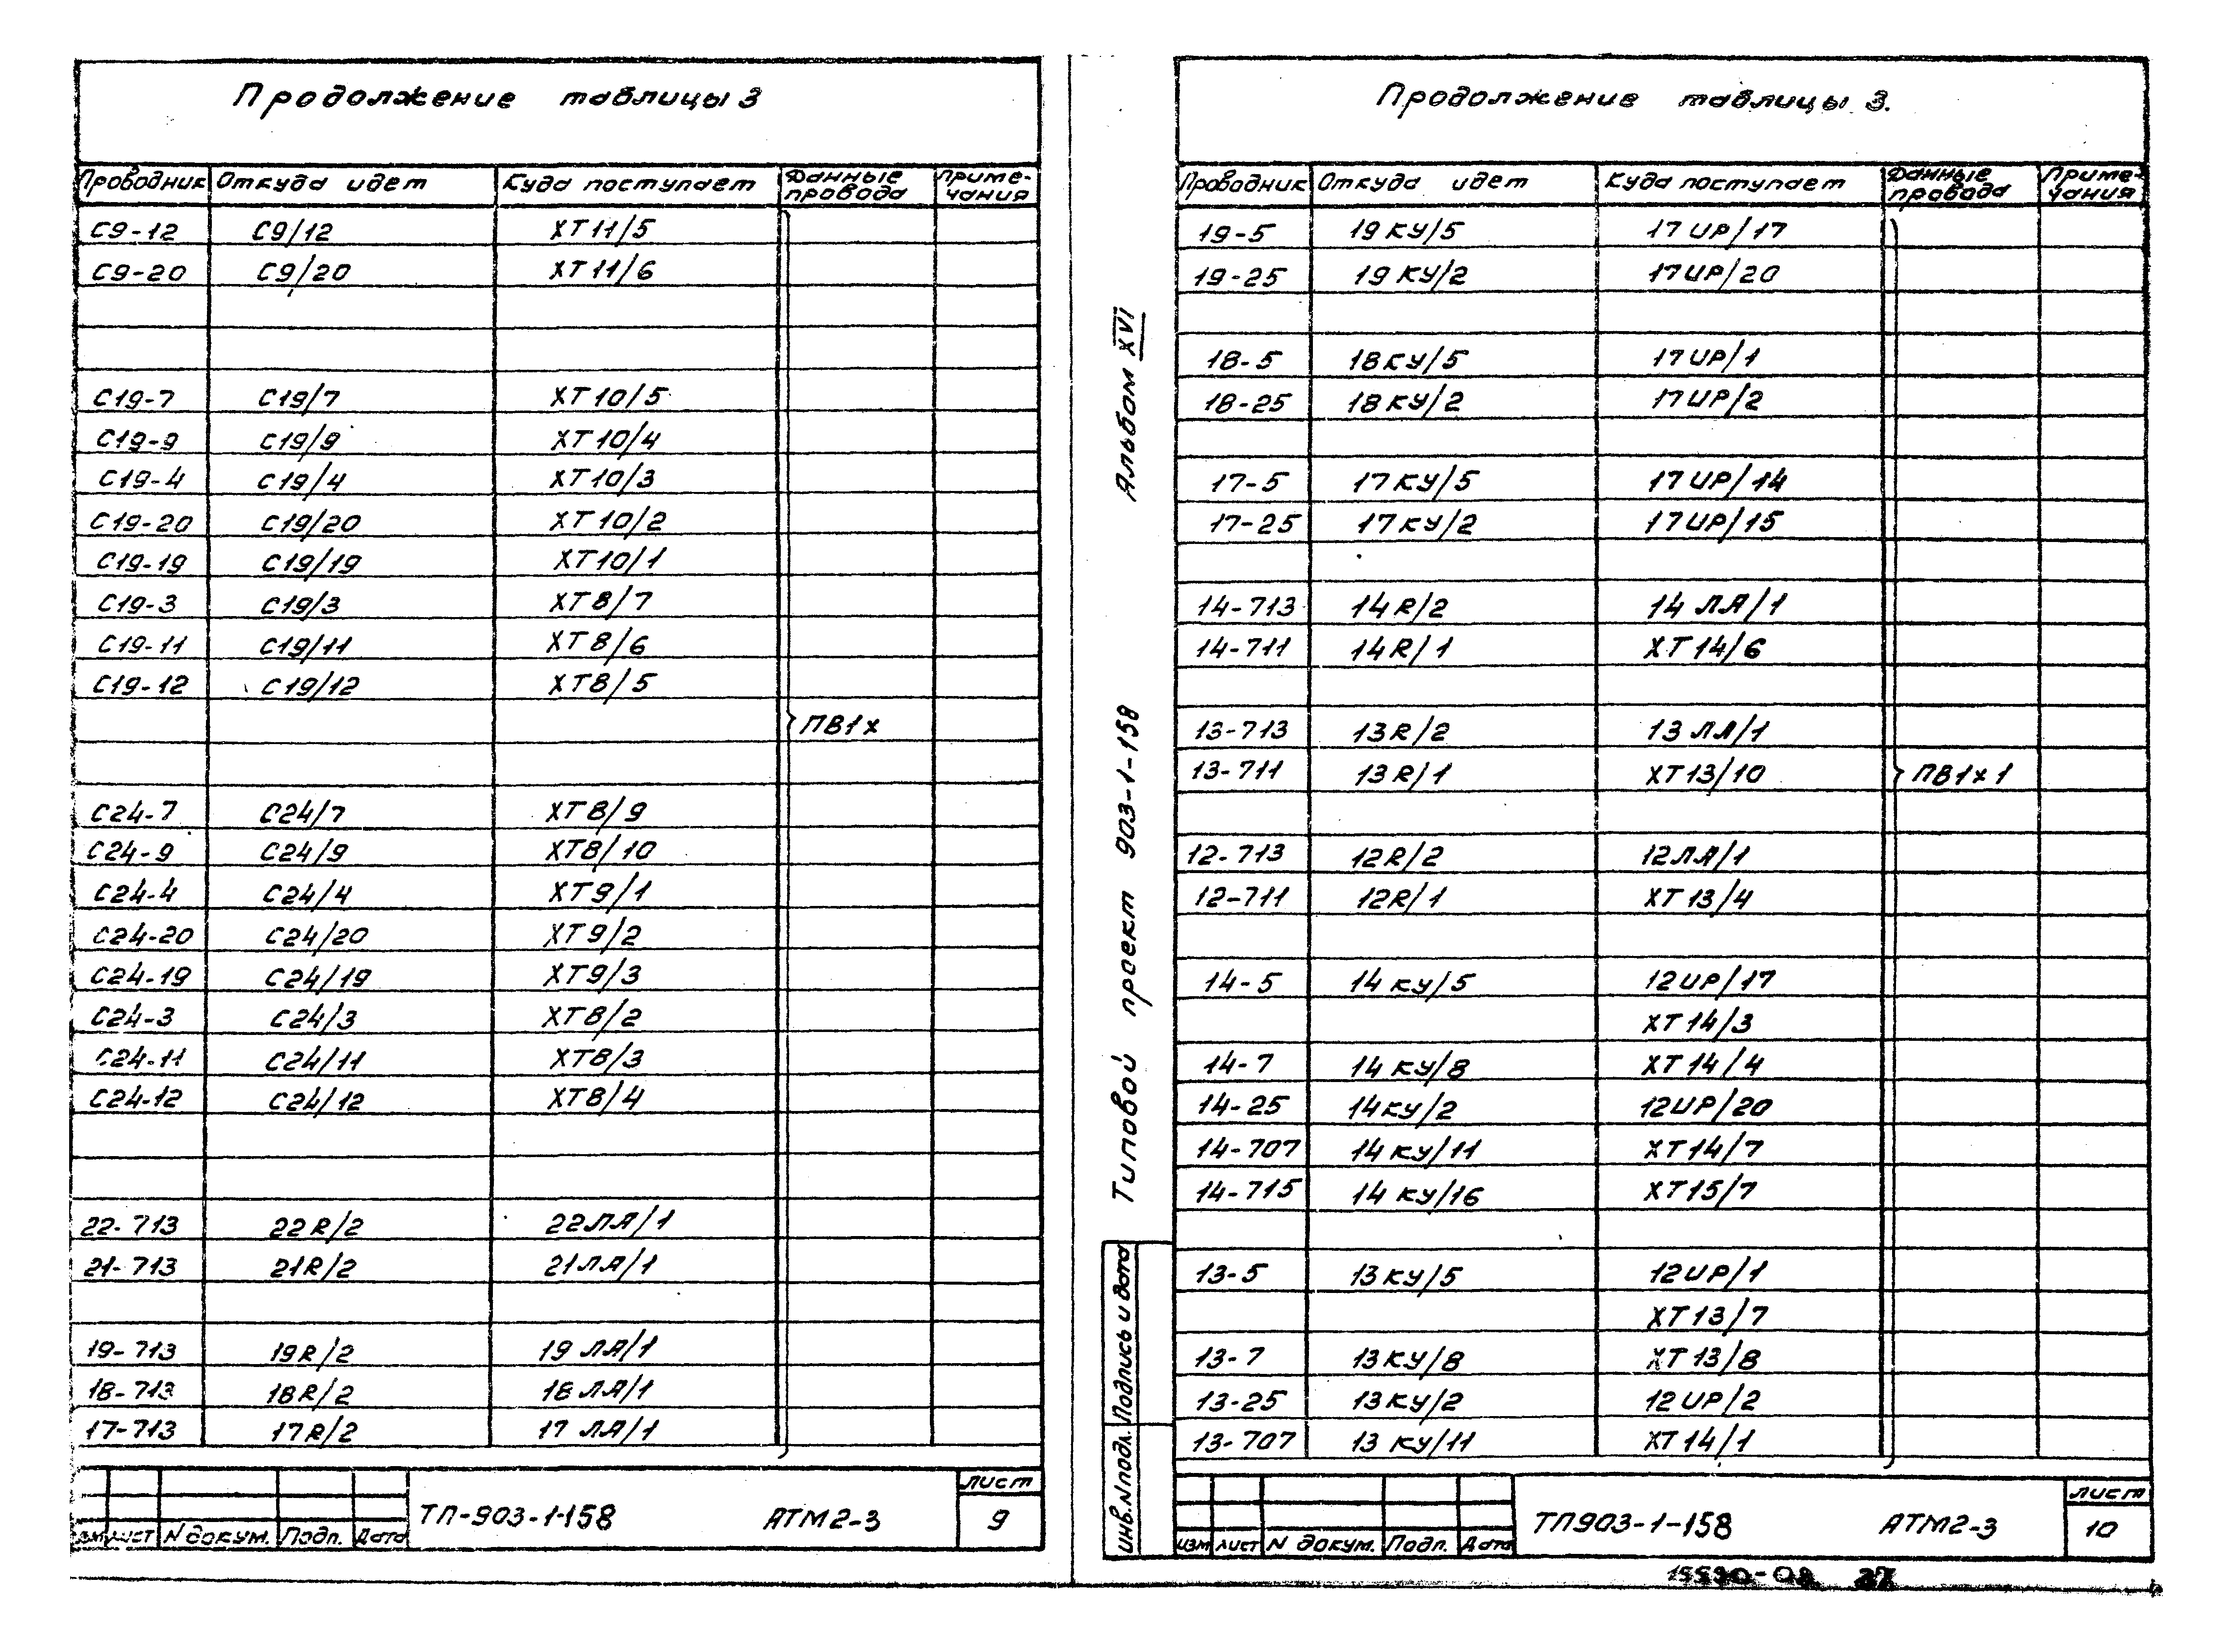 Продолжение таблицы 3
Проводник Откуда идет Куда поступает Данные провода Приме-чания
С9-12 С9/12 ХТ11/5
С9-20 С9/20 ХТ11/6
С19-7 С19/7 ХТ10/5
С19-9 С19/9 ХТ10/4
С19-4 С19/4 ХТ10/3
С19-20 С19/20 ХТ10/2
С19-19 С19/19 ХТ10/1
С19-3 С19/3 ХТ8/7
С19-11 С19/11 ХТ8/6
С19-12 С19/12 ХТ8/5
ПВ1х
С24-7 С24/7 ХТ8/9
С24-9 С24/9 ХТ8/10
С24-4 С24/4 ХТ9/1
С24-20 С24/20 ХТ9/2
С24-19 С24/19 ХТ9/3
С24-3 С24/3 ХТ8/2
С24-11 С24/11 ХТ8/3
С24-12 С24/12 ХТ8/4
22-713 22R/2 22ЛЯ/1
21-713 21R/2 21ЛЯ/1
19-713 19R/2 19ЛЯ/1
18-713 18R/2 18ЛЯ/1
17-713 17R/2 17ЛЯ/1
Изм Лист N докум. Подп. Дата
ТП-903-1-158 АТМ2-3 Лист 9
Альбом XVI
Типовой проект 903-1-158
Подпись и дата
Инв.N подл.
Продолжение таблицы 3.
Проводник Откуда идет Куда поступает Данные провода Приме-чания
19-5 19КУ/5 17UP/17
19-25 19КУ/2 17UP/20
18-5 18КУ/5 17UP/1
18-25 18КУ/2 17UP/2
17-5 17КУ/5 17UP/14
17-25 17КУ/2 17UP/15
14-713 14R/2 14ЛЯ/1
14-711 14R/1 ХТ14/6
13-713 13R/2 13ЛЯ/1
13-711 13R/1 ХТ13/10 ПВ1х1
12-713 12R/2 12ЛЯ/1
12-711 12R/1 ХТ13/4
14-5 14КУ/5 12UP/17
ХТ14/3
14-7 14КУ/8 ХТ14/4
14-25 14КУ/2 12UP/20
14-707 14КУ/11 ХТ14/7
14-715 14КУ/16 ХТ15/7
13-5 13КУ/5 12UP/1
ХТ13/7
13-7 13КУ/8 ХТ13/8
13-25 13КУ/2 12UP/2
13-707 13КУ/11 ХТ14/1
Изм Лист N докум. Подп. Дата
ТП903-1-158 АТМ2-3 Лист 10